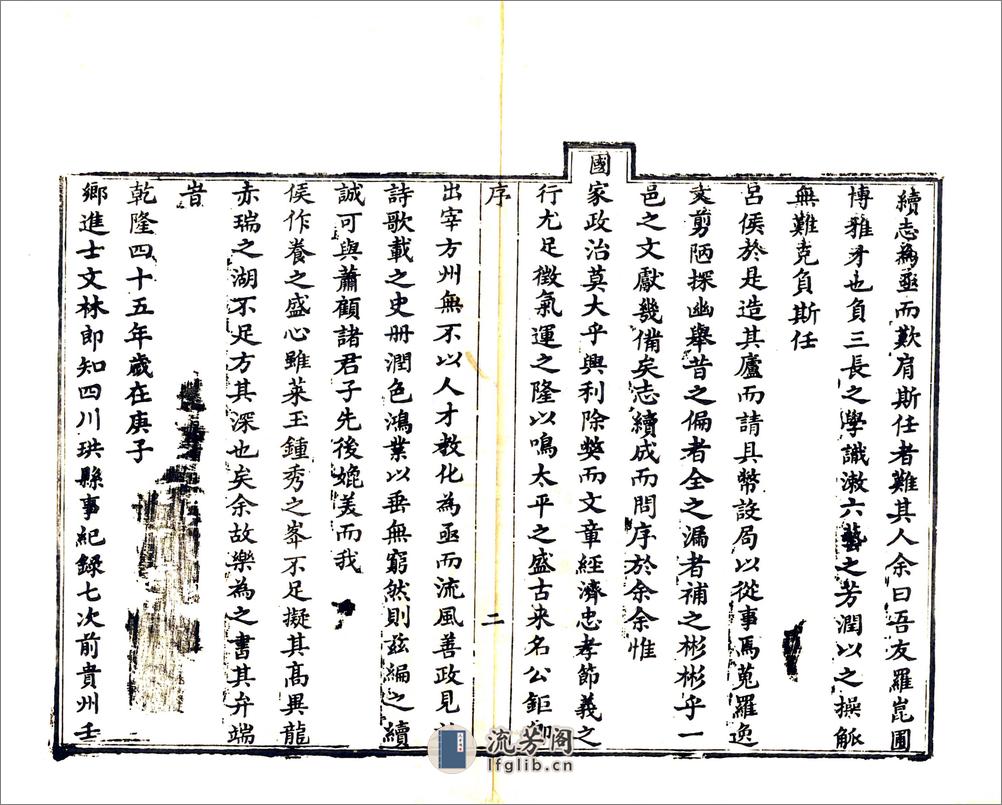 續志為亟而歎肩斯任者難其人余曰吾友羅崑圃
博雅才也負三長之學識漱六藝之芳潤以之操觚
無難克負斯任
呂侯於是造其廬而請具幣設局以從事焉蒐羅逸
文剪陋探幽舉昔之偏者全之漏者補之彬彬乎一
邑之文獻幾備矣志續成而問序於余余惟
國家政治莫大乎興利除弊而文章經濟忠孝節義之
行尤足徵氣運之隆以鳴太平之盛古来名公鉅卿
序
二
出宰方州無不以人才教化為亟而流風善政見
詩歌載之史册潤色鴻業以垂無窮然則茲編之續
誠可與蕭顧諸君子先後媲美而我
侯作養之盛心雖萊玉鍾秀之峯不足擬其高異龍
赤瑞之湖不足方其深也矣余故樂為之書其弁端
旹
乾隆四十五年歲在庚子
鄉進士文林郎知四川珙縣事紀録七次前貴州壬
流芳阁
lfglib.cn